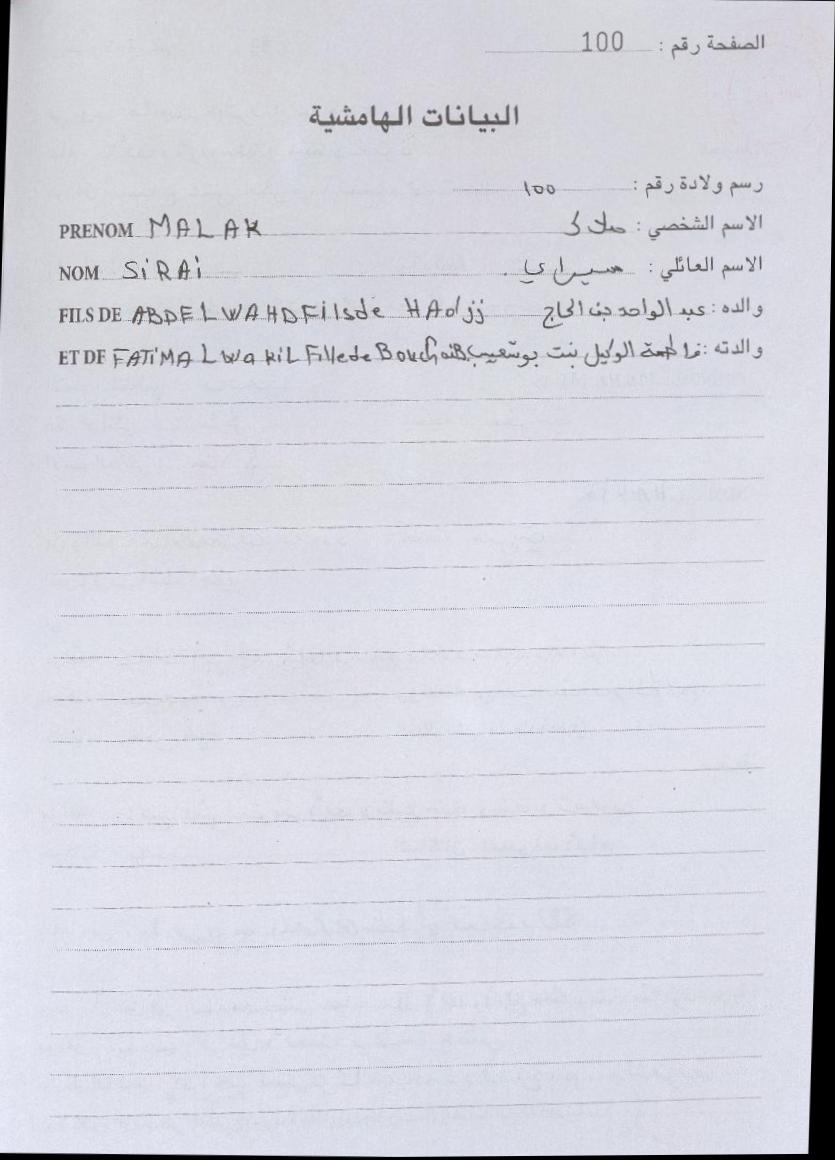 الصفحة رقم : 100
البيانات الهامشية
رسم ولادة رقم : 100
الاسم الشخصي : ملاك PRENOM MALAK
الاسم العائلي : سيراي . NOM SiRAi
والده : عبد الواحد بن الحاج FILS DE ABDELWAHD Fils de HAdjj
والدته : فاطمة الوكيل بنت بوشعيب ET DE FATiMA LWakiL Fille de BouchaiB